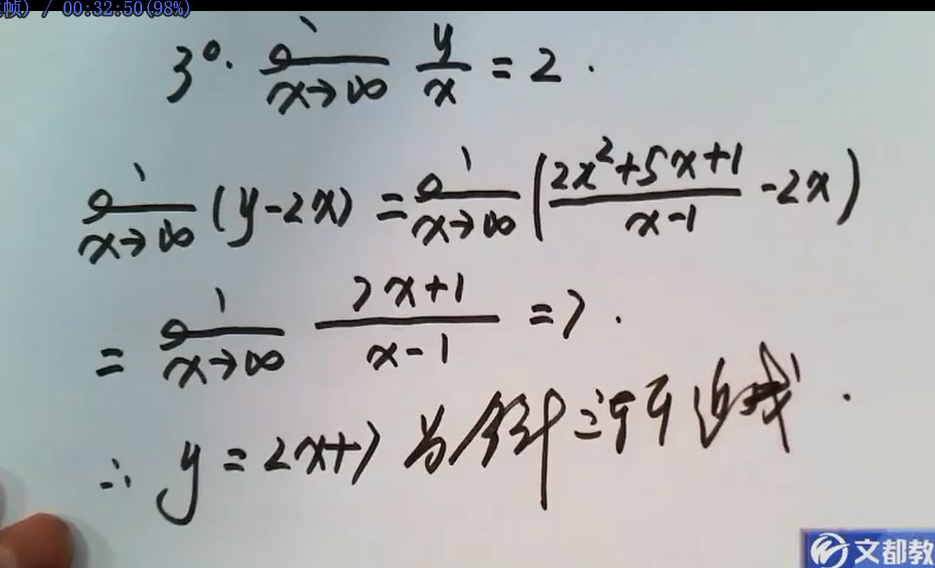 帧) / 00:32:50(98%)
3°. lim x→∞ y/x = 2.
lim x→∞ (y-2x) = lim x→∞ ((2x²+5x+1)/(x-1) -2x)
= lim x→∞ (7x+1)/(x-1) = 7.
∴ y = 2x+7 为斜渐近线.
文都教